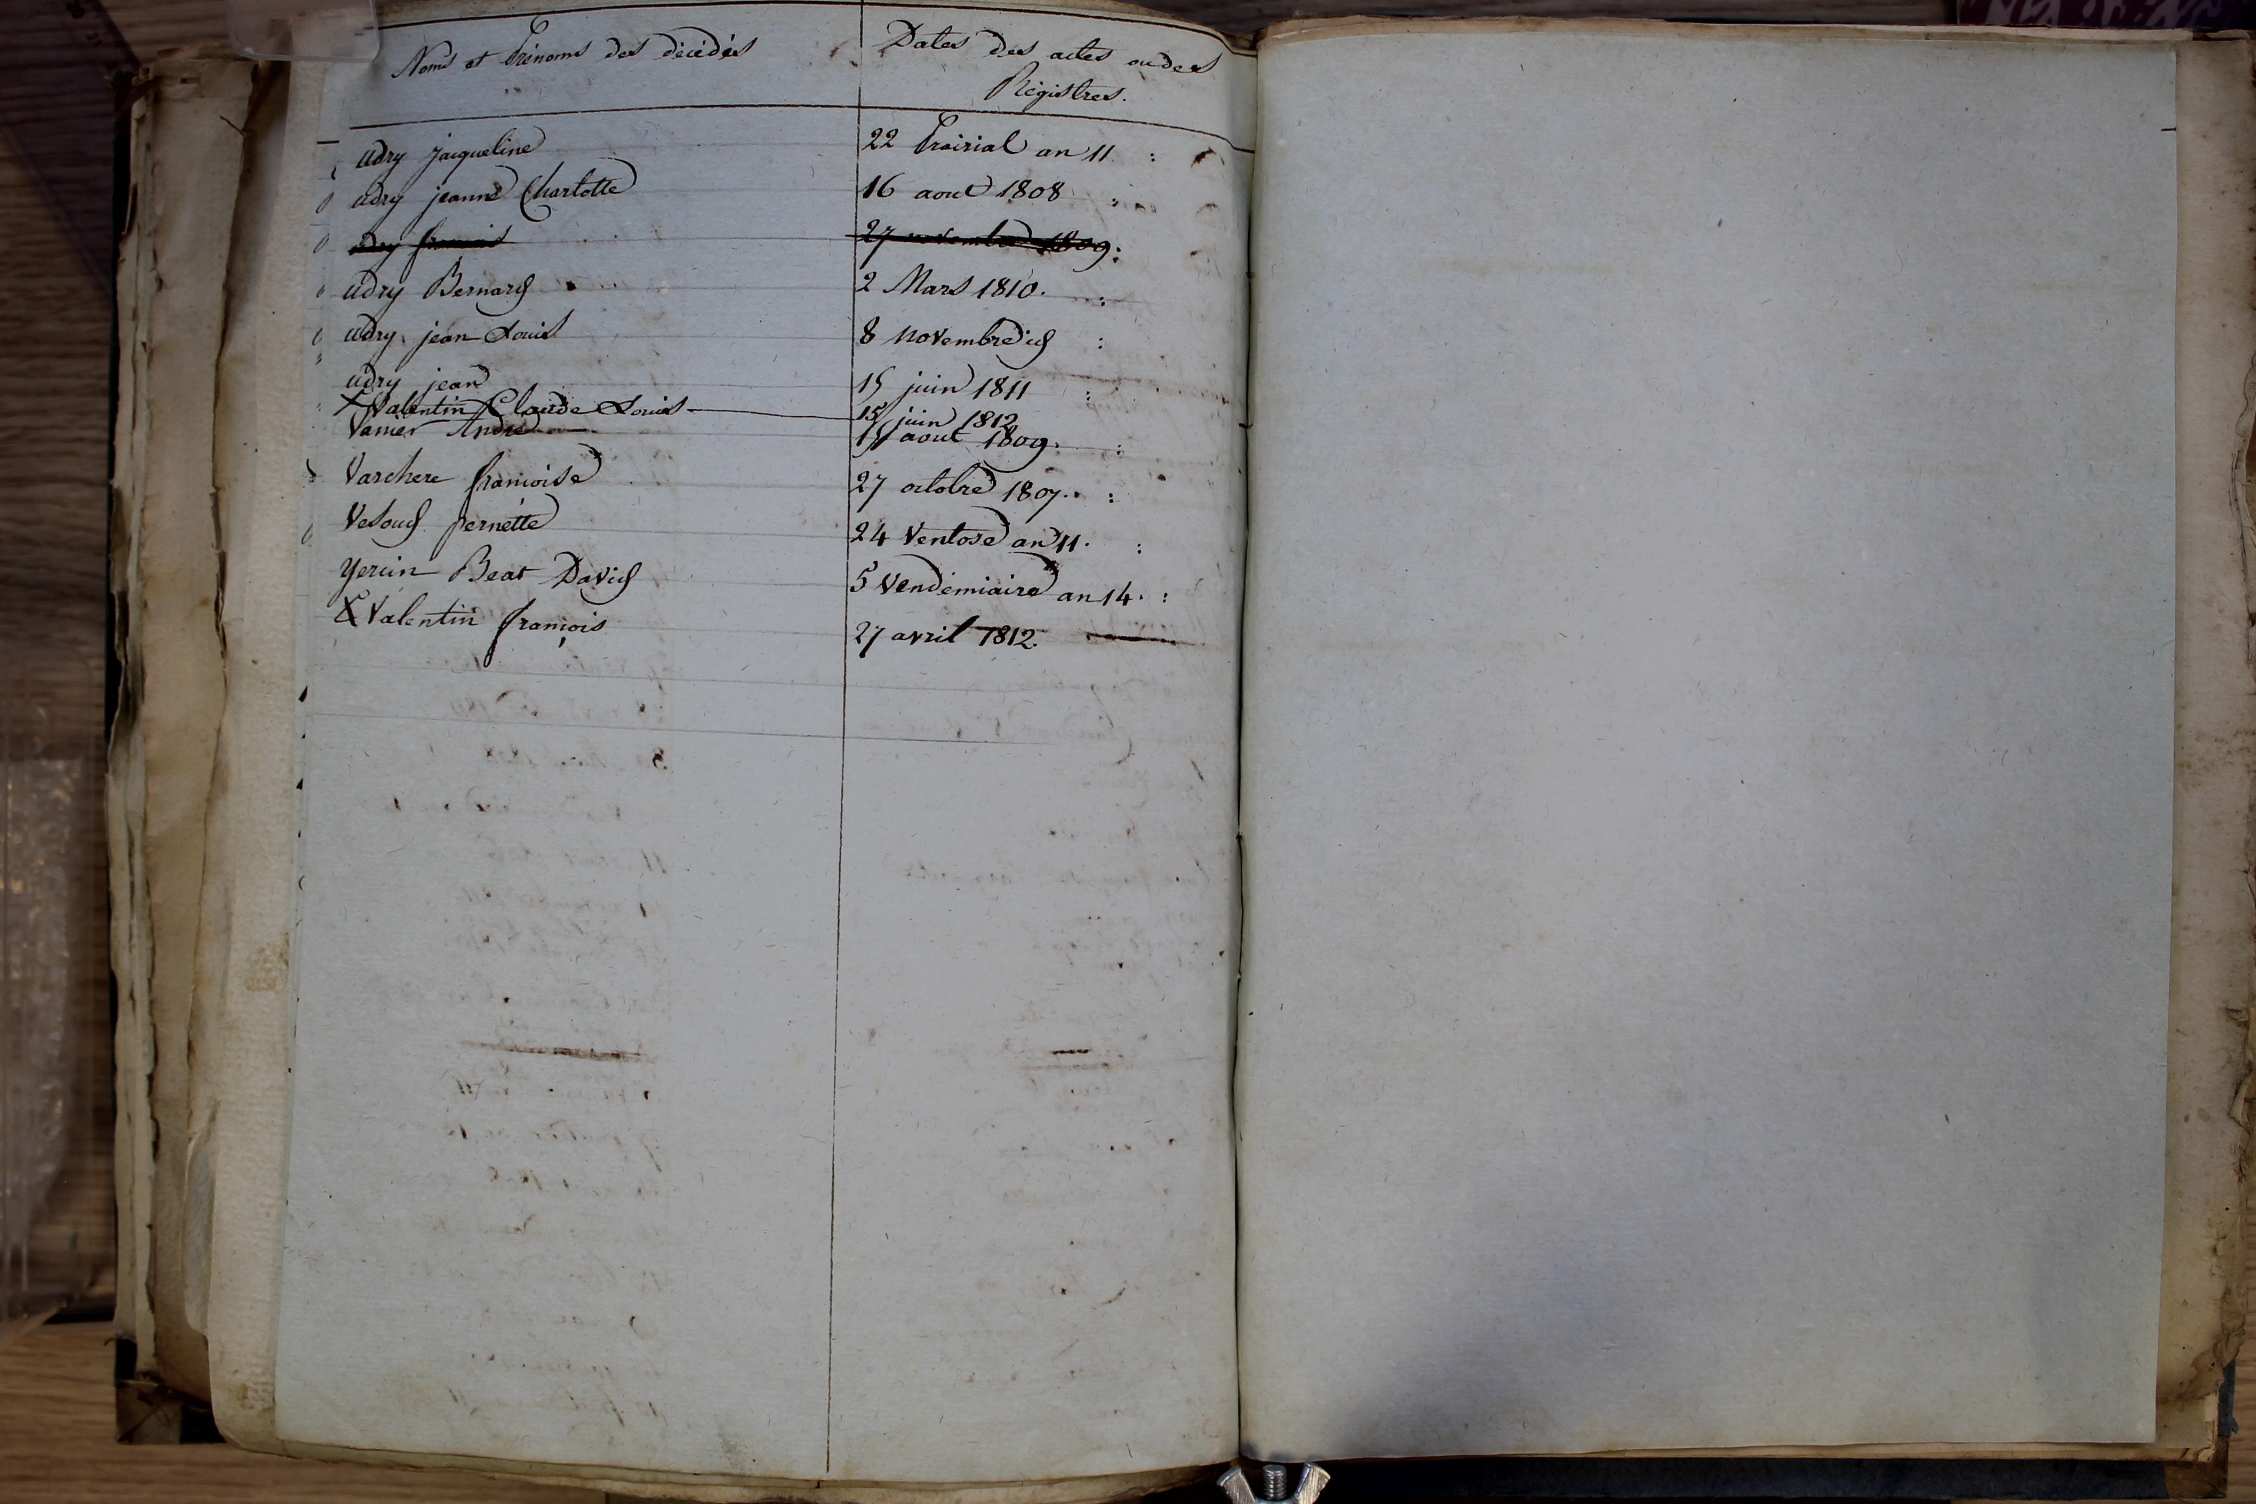 Noms et Prénoms des décédés
Dates des actes ou des
Régistres.
udry jaiqueline 22 Prairial an 11 :
udry jeanne Charlotte 16 aout 1808 "
udry francois 27 novembre 1809 :
udry Bernard 2 Mars 1810. :
udry jean Louis 8 novembre id :
udry jean 15 juin 1811 :
X Valentin Claude Louis 15 juin 1812
Vanier André 15 aout 1809. :
Varchere francoise 27 octobre 1807. :
Vesoud pernette 24 Ventose an 11. :
yersin Beat David 5 Vendémiaire an 14. :
X Valentin françois 27 avril 1812.